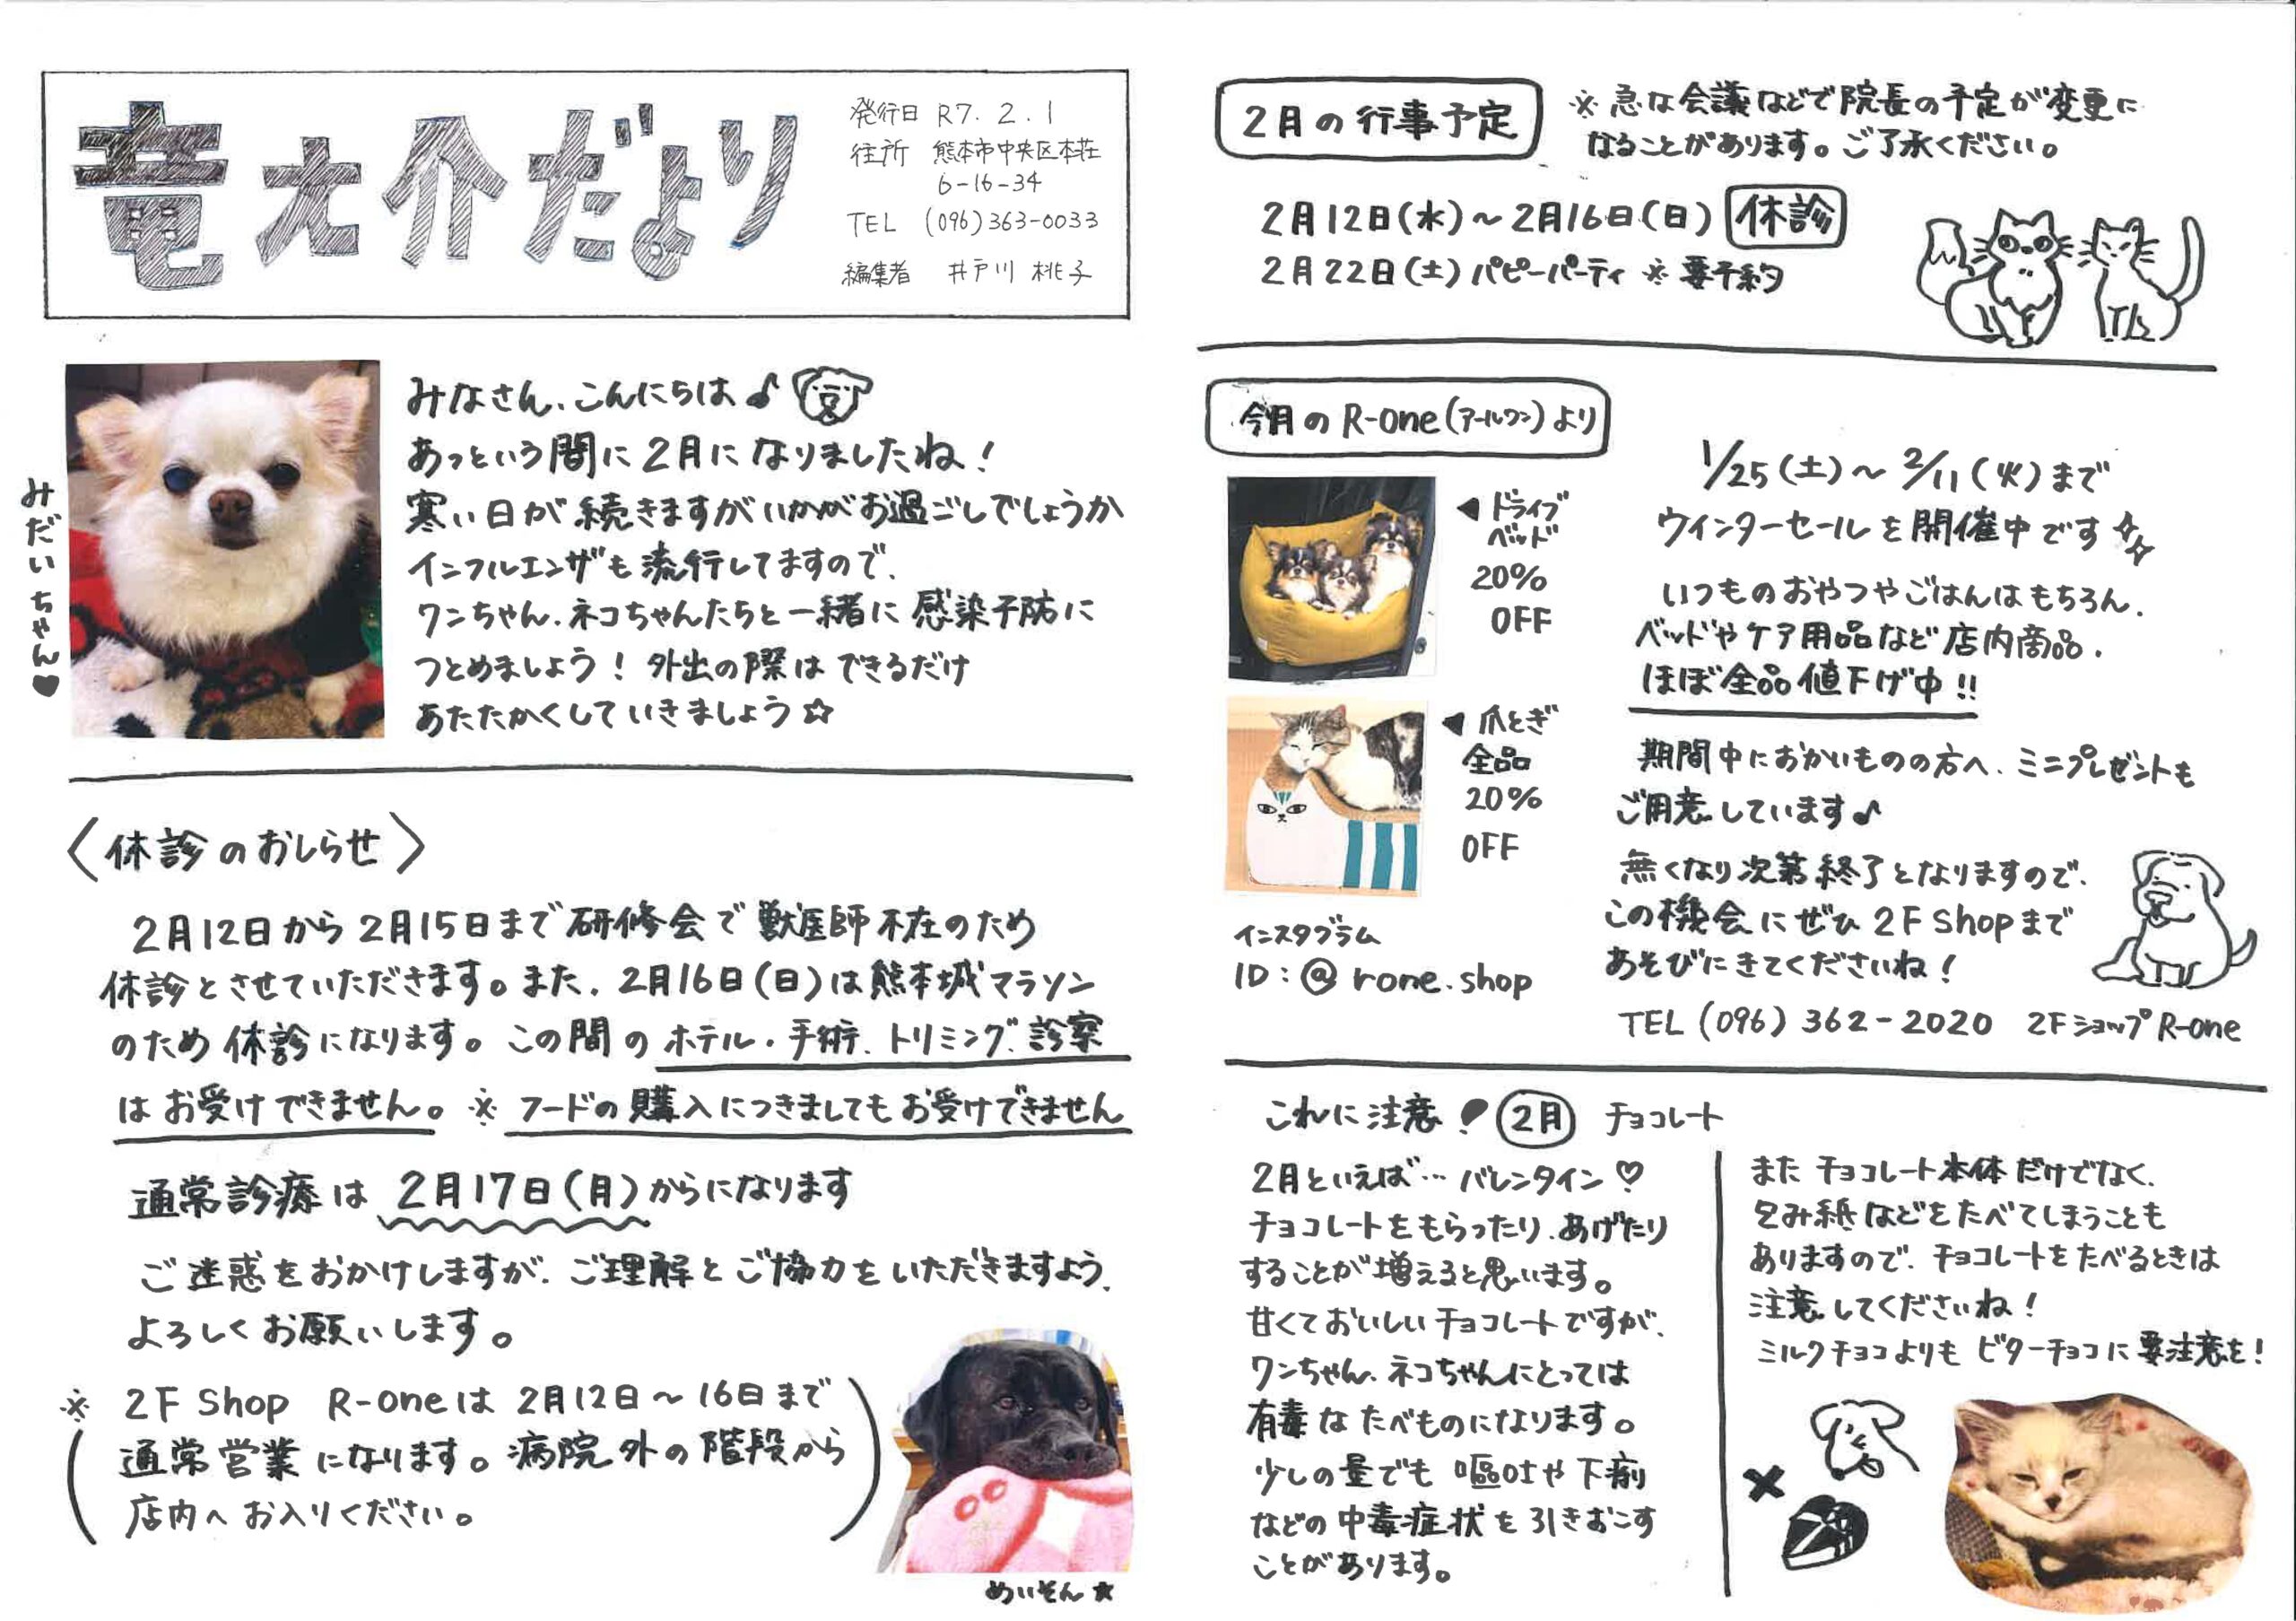 竜之介だより
発行日 R7. 2. 1
住所 熊本市中央区本荘
6-16-34
TEL (096)363-0033
編集者 井戸川 桃子
みだいちゃん♥
みなさん、こんにちは♪
あっという間に2月になりましたね！
寒い日が続きますがいかがお過ごしでしょうか
インフルエンザも流行してますので、
ワンちゃん、ネコちゃんたちと一緒に感染予防に
つとめましょう！外出の際はできるだけ
あたたかくしていきましょう☆
〈休診のおしらせ〉
2月12日から2月15日まで研修会で獣医師不在のため
休診とさせていただきます。また、2月16日(日)は熊本城マラソン
のため休診になります。この間のホテル・手術、トリミング、診察
はお受けできません。※フードの購入につきましてもお受けできません
通常診療は 2月17日(月)からになります
ご迷惑をおかけしますが、ご理解とご協力をいただきますよう、
よろしくお願いします。
※ 2F Shop R-oneは2月12日～16日まで
通常営業になります。病院外の階段から
店内へお入りください。
めいそん★
2月の行事予定
※急な会議などで院長の予定が変更に
なることがあります。ご了承ください。
2月12日(水)～2月16日(日) 休診
2月22日(土)パピーパーティ ※要予約
今月のR-one(アールワン)より
◀ドライブ
ベッド
20%
OFF
◀爪とぎ
全品
20%
OFF
インスタグラム
ID:@rone.shop
1/25(土)～2/11(火)まで
ウインターセールを開催中です
いつものおやつやごはんはもちろん、
ベッドやケア用品など店内商品、
ほぼ全品値下げ中!!
期間中におかいものの方へ、ミニプレゼントも
ご用意しています♪
無くなり次第終了となりますので、
この機会にぜひ2F Shopまで
あそびにきてくださいね！
TEL (096)362-2020 2FショップR-one
これに注意！ 2月 チョコレート
2月といえば…バレンタイン♡
チョコレートをもらったり、あげたり
することが増えると思います。
甘くておいしいチョコレートですが、
ワンちゃん、ネコちゃんにとっては
有毒なたべものになります。
少しの量でも嘔吐や下痢
などの中毒症状を引きおこす
ことがあります。
またチョコレート本体だけでなく、
包み紙などをたべてしまうことも
ありますので、チョコレートをたべるときは
注意してくださいね！
ミルクチョコよりもビターチョコに要注意を！